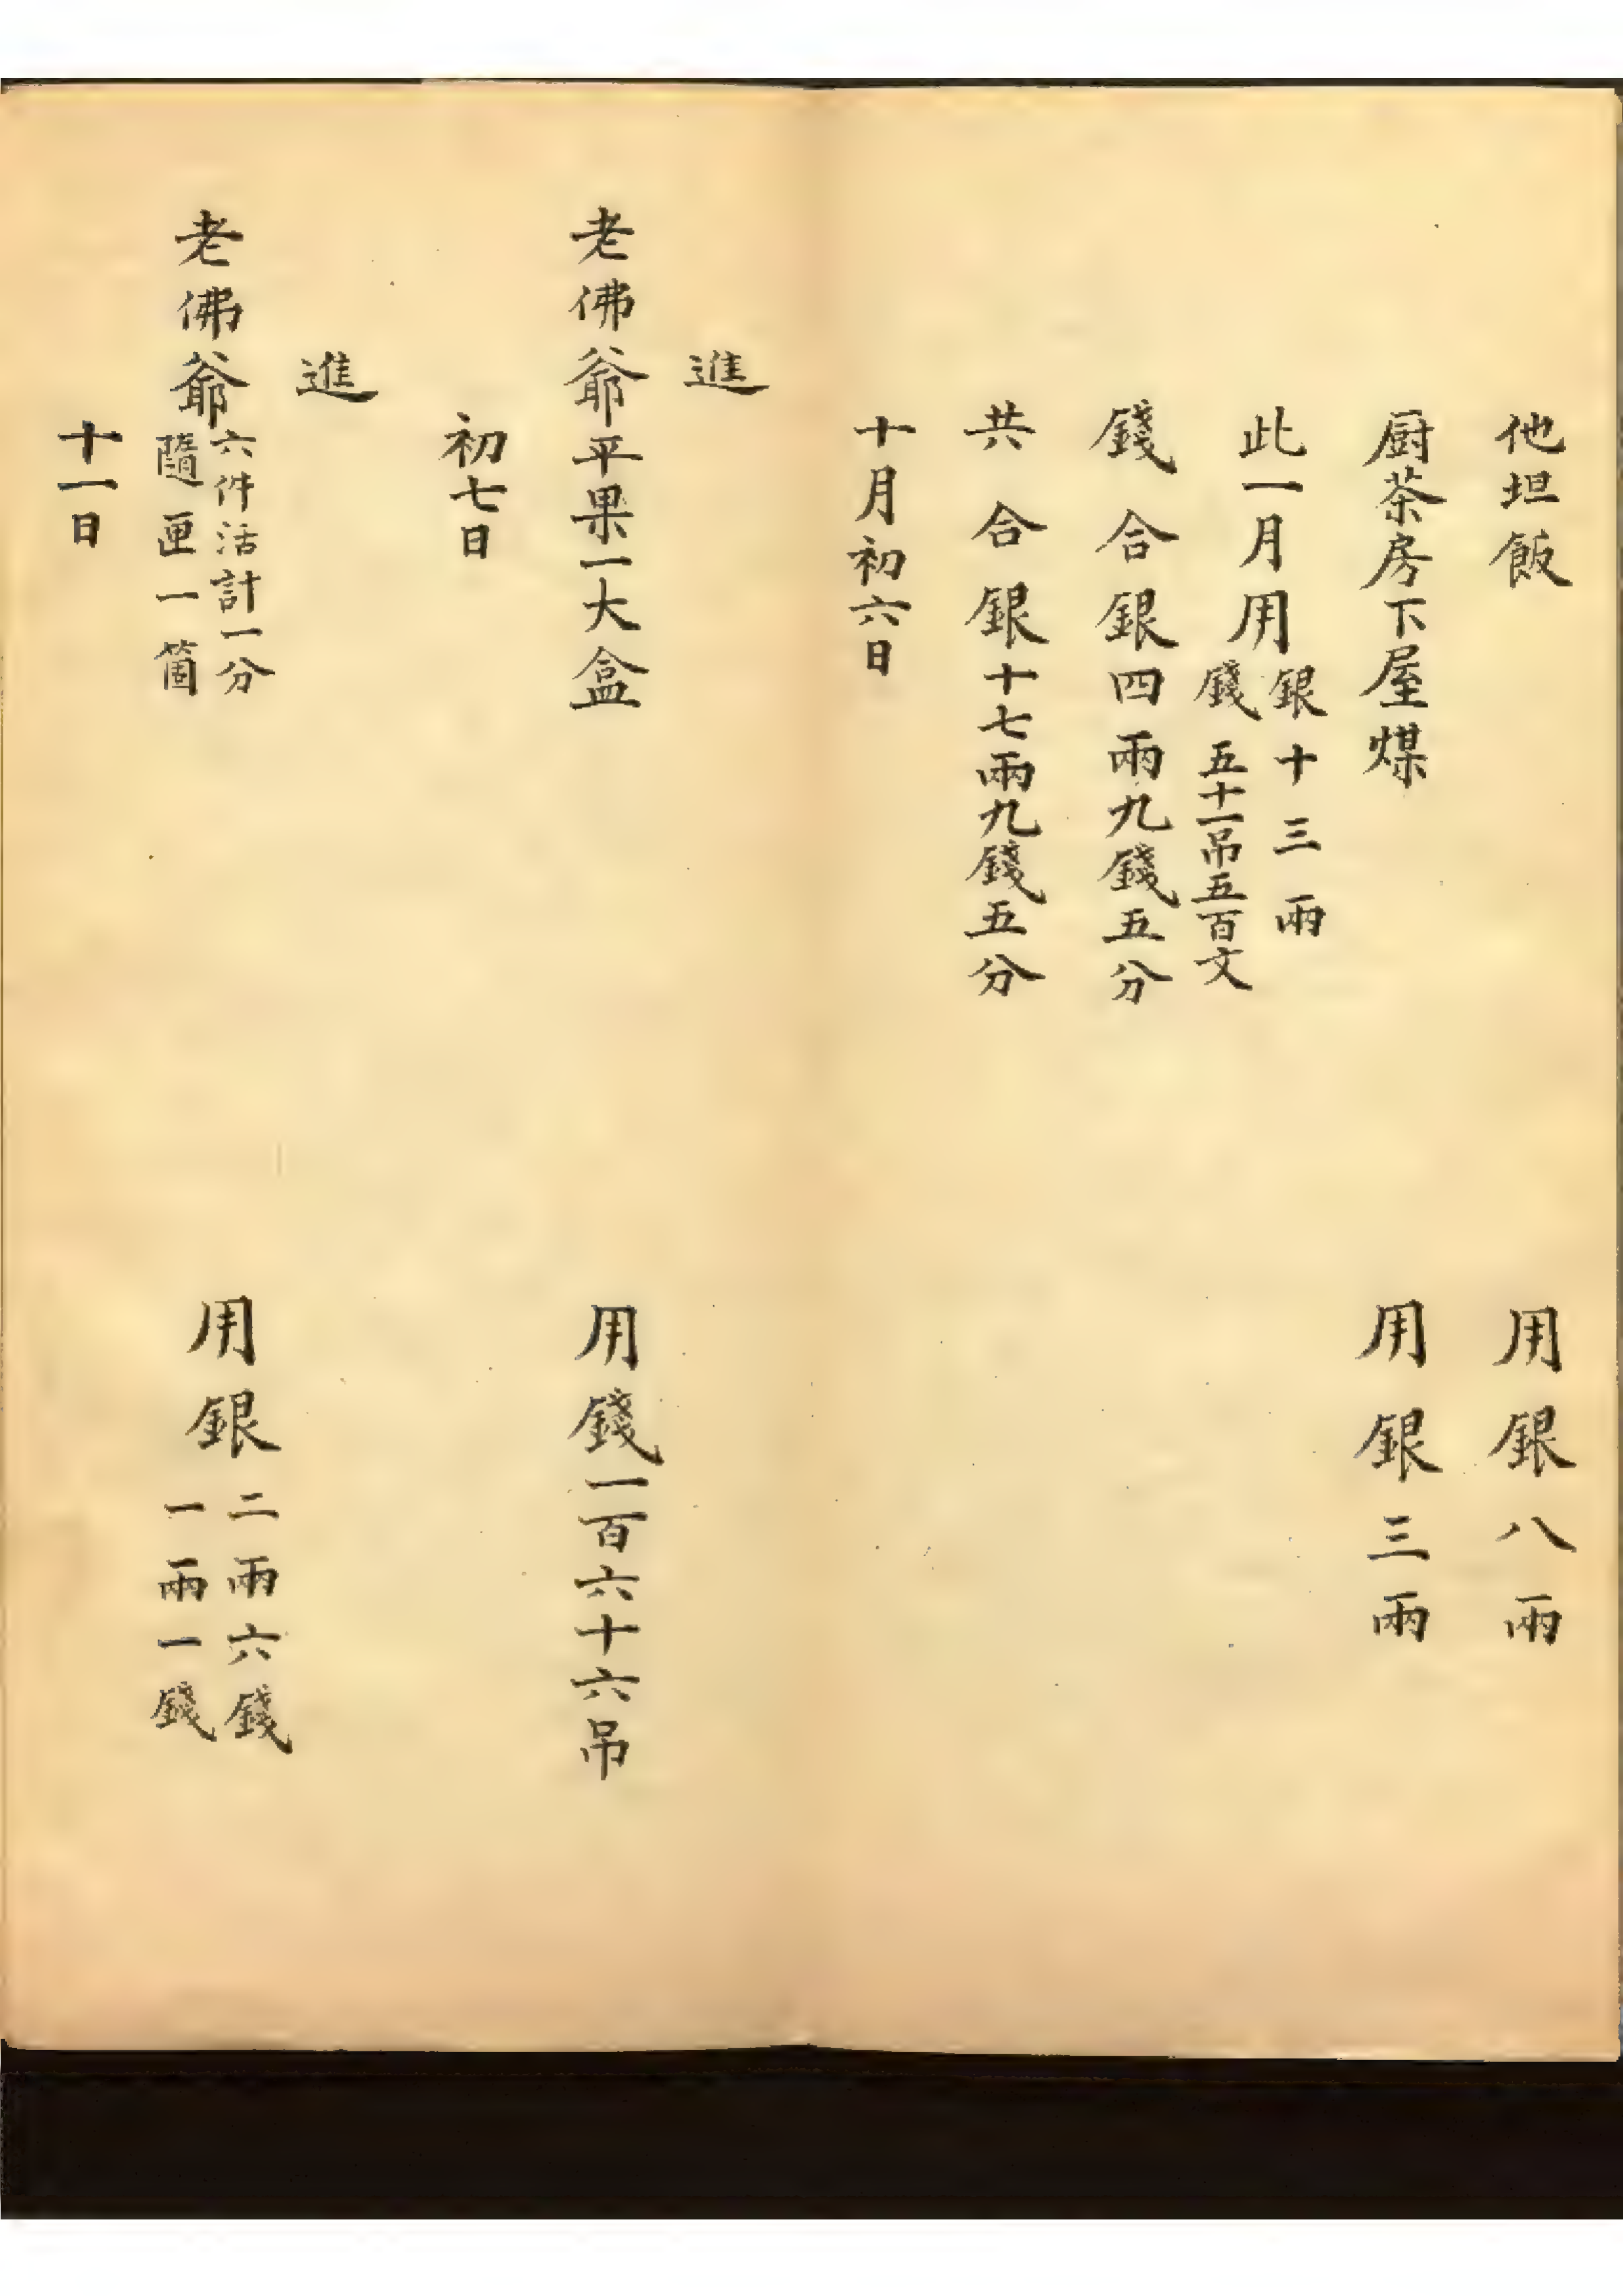 他坦飯　用銀八兩
厨茶房下屋煤　用銀三兩
此一月用銀十三兩
錢五十一吊五百文
錢合銀四兩九錢五分
共合銀十七兩九錢五分
十月初六日
進
老佛爺平果一大盒　用錢一百六十六吊
初七日
進
老佛爺六件活計一分　用銀二兩六錢
隨匣一箇　一兩一錢
十一日